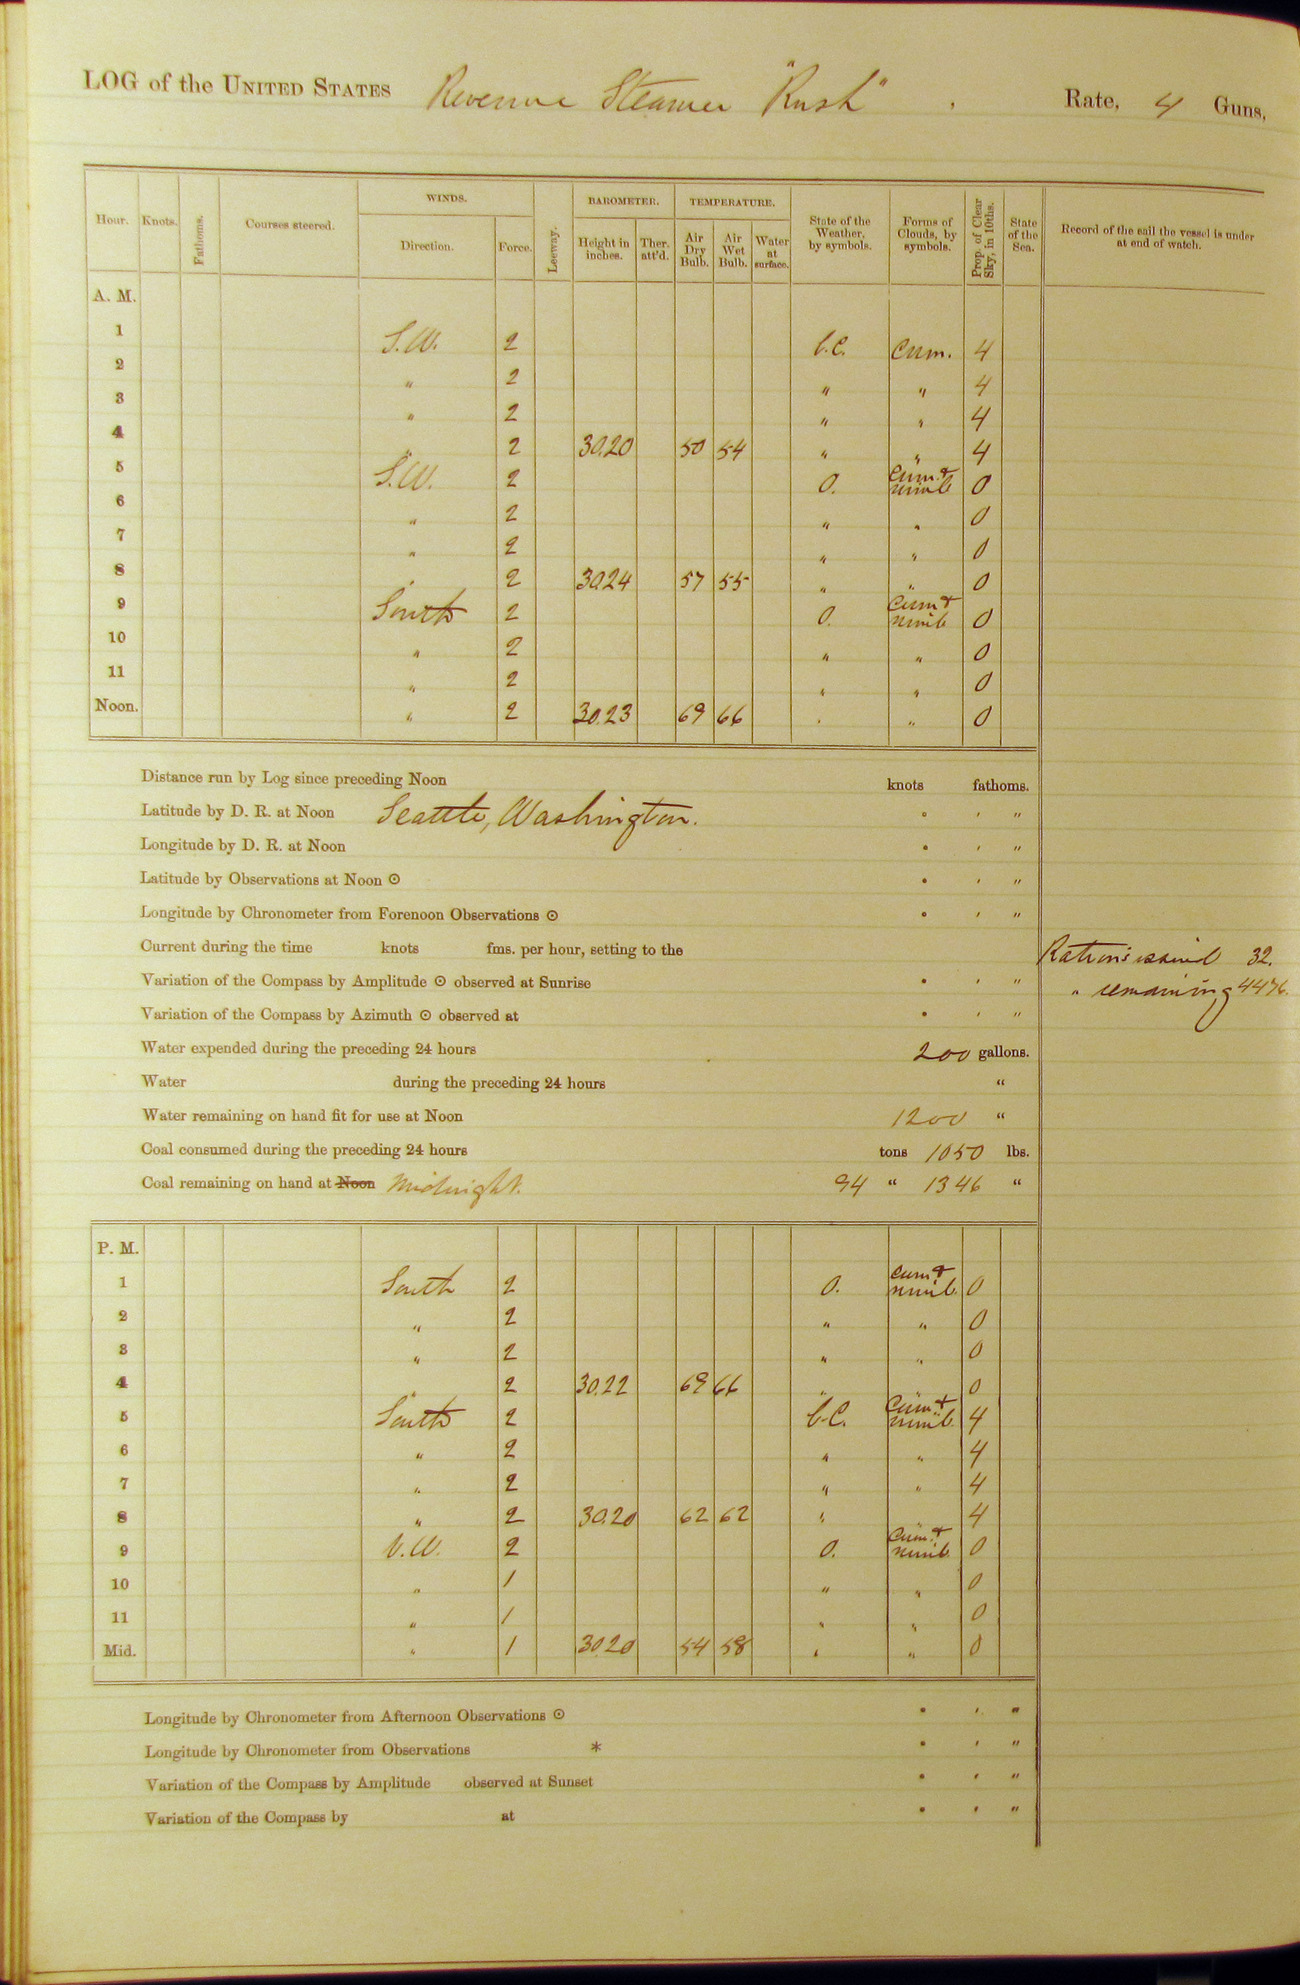 LOG of the UNITED STATES Revenue Steamer "Rush", Rate, 4 Guns,
WINDS. BAROMETER. TEMPERATURE.
Hour. Knots. Fathoms. Courses steered. Direction. Force. Leeway. Height in inches. Ther. att'd. Air Dry Bulb. Air Wet Bulb. Water at surface. State of the Weather, by symbols. Forms of Clouds, by symbols. Prop. of Clear Sky, in 10ths. State of the Sea. Record of the sail the vessel is under at end of watch.
A. M.
1 S.W. 2 b.c. Cum. 4
2 " 2 " " 4
3 " 2 " " 4
4 " 2 30.20 50 54 " " 4
5 S.W. 2 O. Cum. & nimb 0
6 " 2 " " 0
7 " 2 " " 0
8 " 2 30.24 57 55 " " 0
9 South 2 O. Cum & nimb 0
10 " 2 " " 0
11 " 2 " " 0
Noon. " 2 30.23 69 66 " " 0
Distance run by Log since preceding Noon knots fathoms.
Latitude by D. R. at Noon Seattle, Washington. ° ' "
Longitude by D. R. at Noon ° ' "
Latitude by Observations at Noon ⊙ ° ' "
Longitude by Chronometer from Forenoon Observations ⊙ ° ' "
Current during the time knots fms. per hour, setting to the
Rations issued 32.
Variation of the Compass by Amplitude ⊙ observed at Sunrise ° ' "
" remaining 4476.
Variation of the Compass by Azimuth ⊙ observed at ° ' "
Water expended during the preceding 24 hours 200 gallons.
Water during the preceding 24 hours "
Water remaining on hand fit for use at Noon 1200 "
Coal consumed during the preceding 24 hours tons 1050 lbs.
Coal remaining on hand at Noon Midnight. 94 " 1346 "
P. M.
1 South 2 O. Cum & nimb. 0
2 " 2 " " 0
3 " 2 " " 0
4 " 2 30.22 69 66 " " 0
5 South 2 b.c. Cum. & nimb. 4
6 " 2 " " 4
7 " 2 " " 4
8 " 2 30.20 62 62 " " 4
9 2 O. Cum. & nimb. 0
10 " 1 " " 0
11 " 1 " " 0
Mid. " 1 30.20 54 58 " " 0
Longitude by Chronometer from Afternoon Observations ⊙ ° ' "
Longitude by Chronometer from Observations * ° ' "
Variation of the Compass by Amplitude observed at Sunset ° ' "
Variation of the Compass by at ° ' "